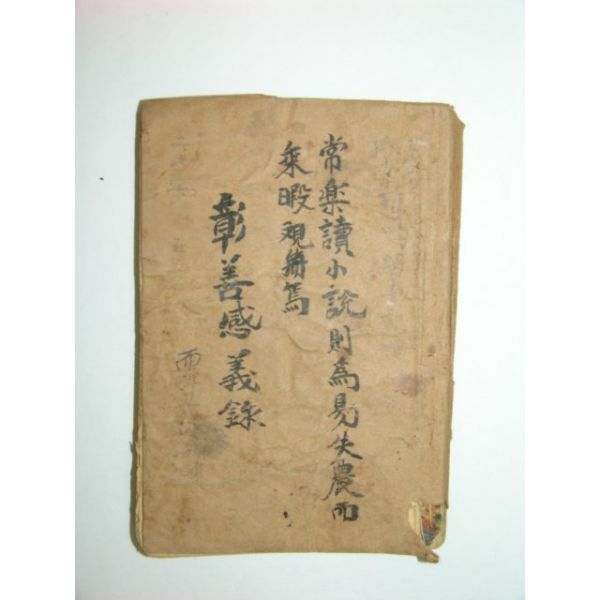 常楽讀小說則為易失農而
乘暇視册焉
彰善感義錄